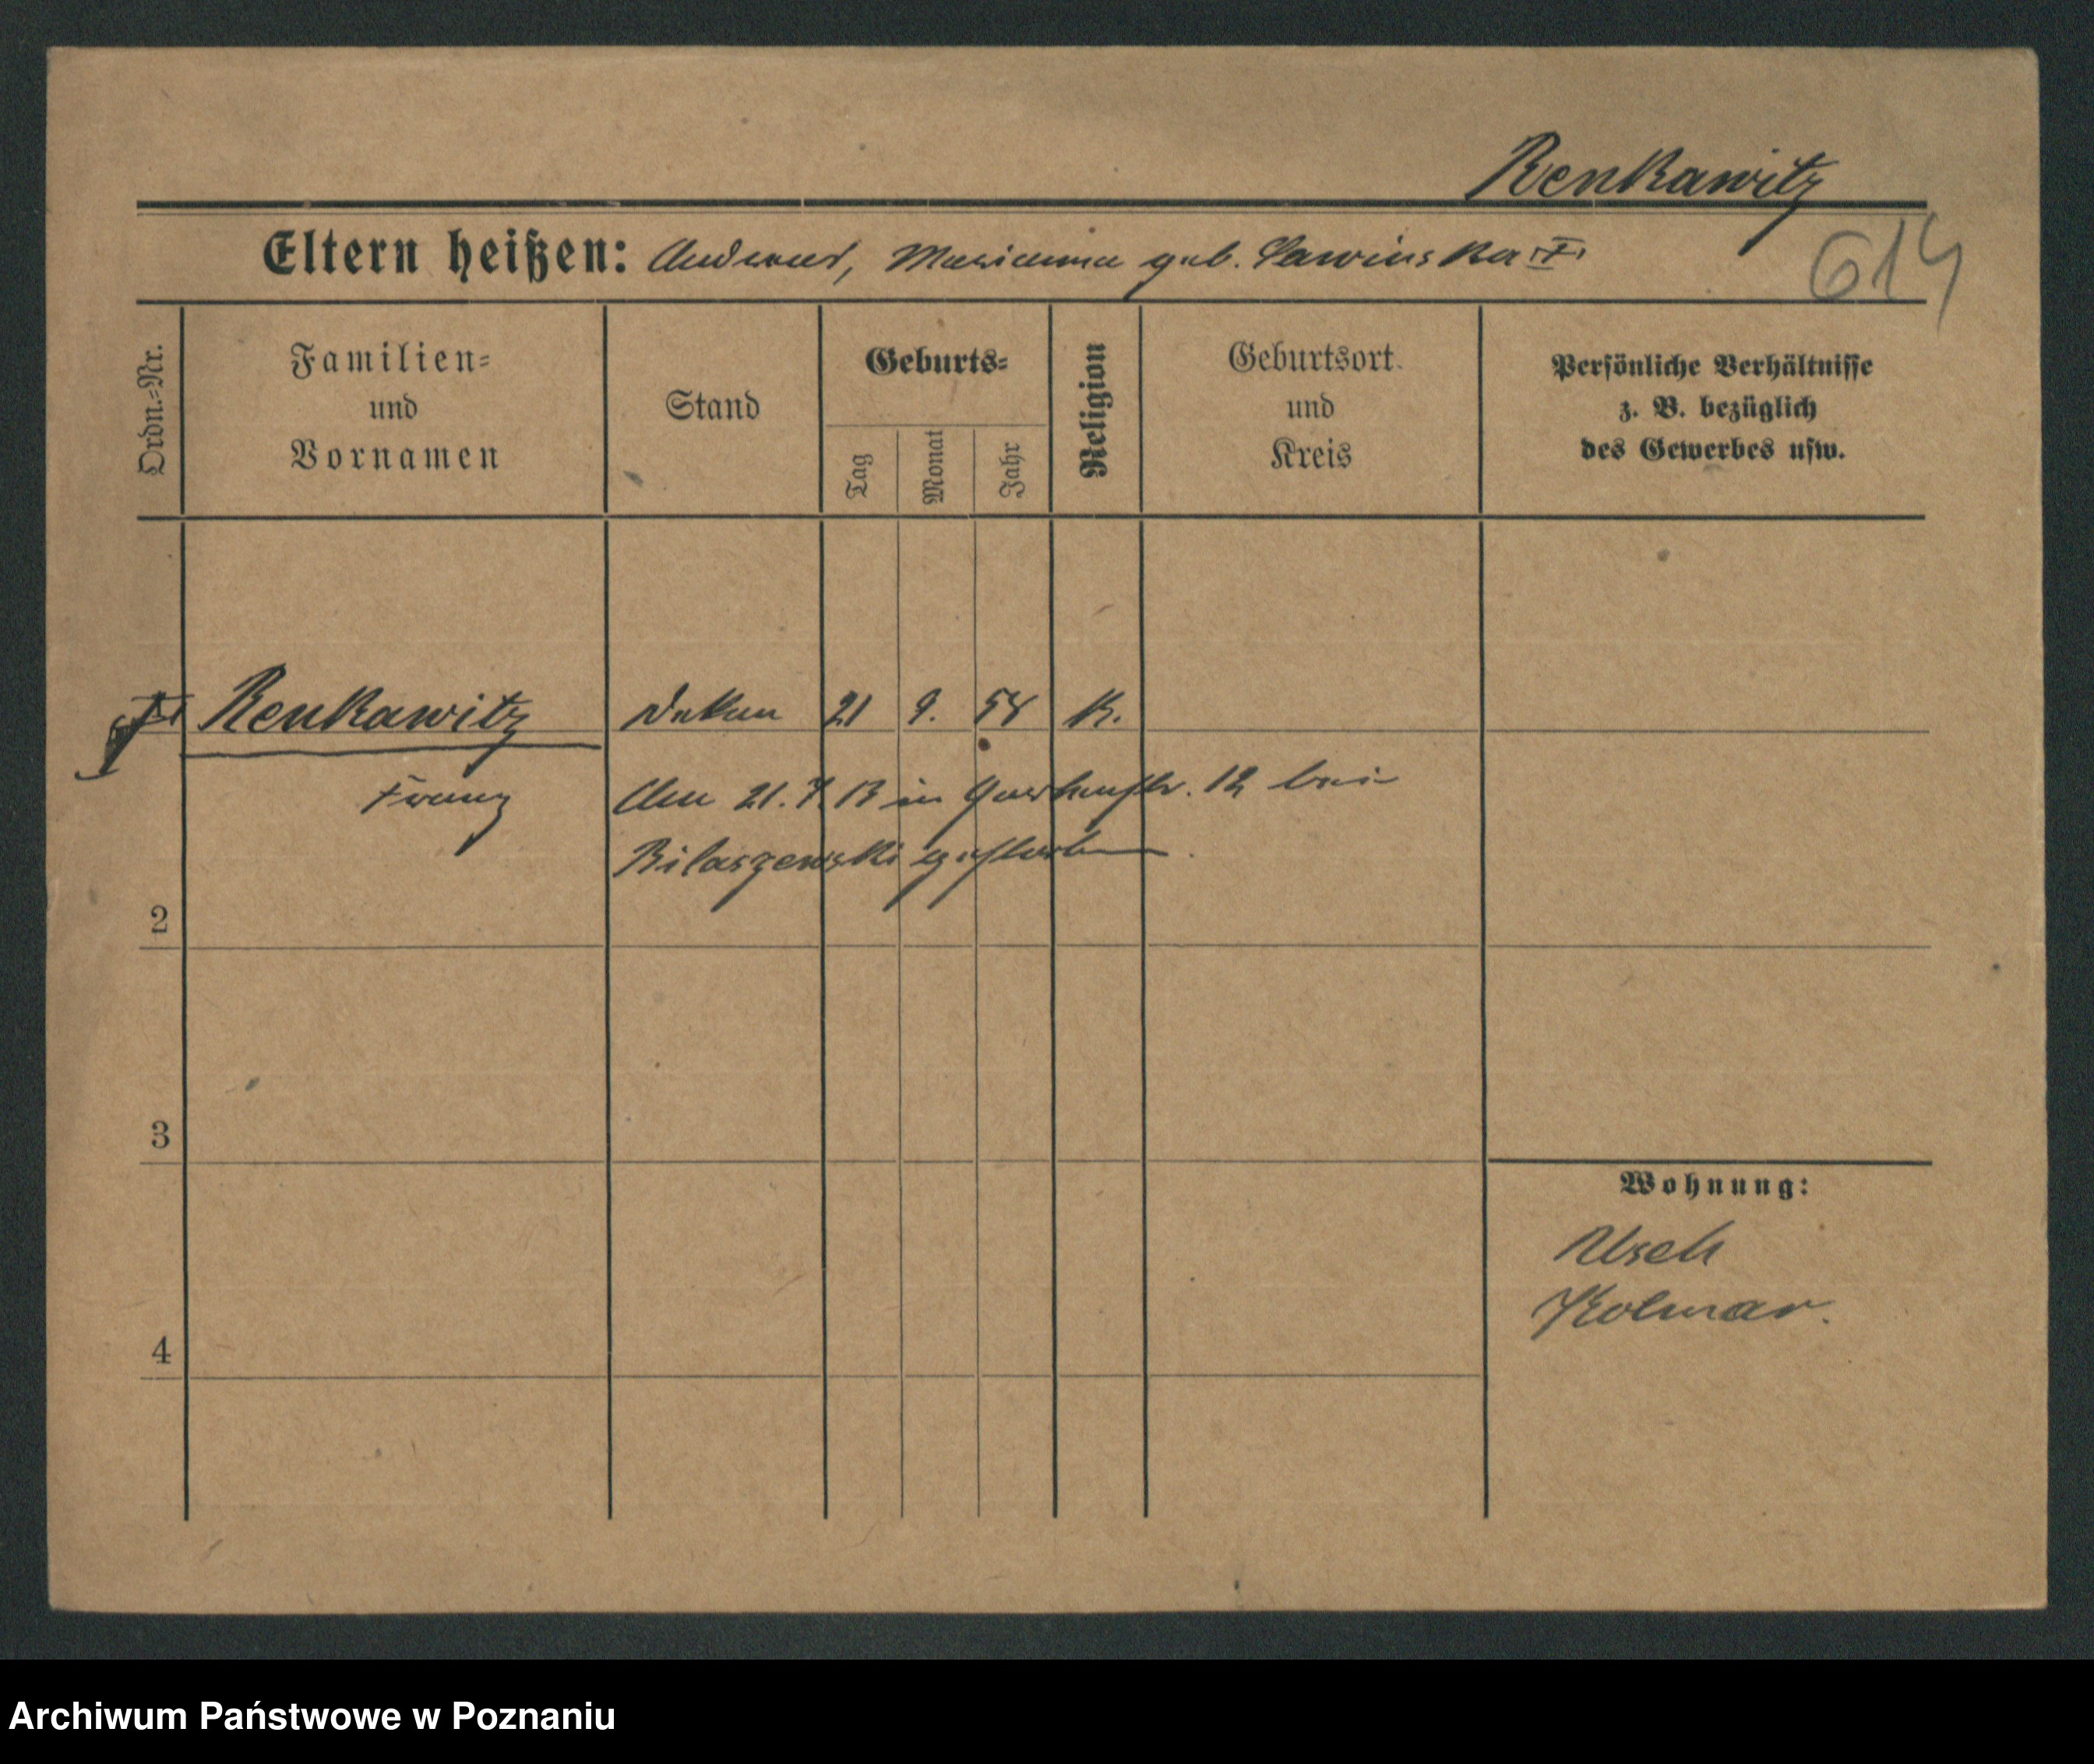 Renkawitz
Eltern heißen: Andreas, Marianna geb. Lawinska ✝
614
Ordn.-Nr.
Familien-
und
Vornamen
Stand
Geburts-
Tag
Monat
Jahr
Religion
Geburtsort
und
Kreis
Persönliche Verhältnisse
z. B. bezüglich
des Gewerbes usw.
Renkawitz Dekan 21 9. 58 K.
Franz Am 21. 7. 13 in 12 bei
Bilaszewski gestorben.
2
3
Wohnung:
Usch
Kolmar.
4
Archiwum Państwowe w Poznaniu